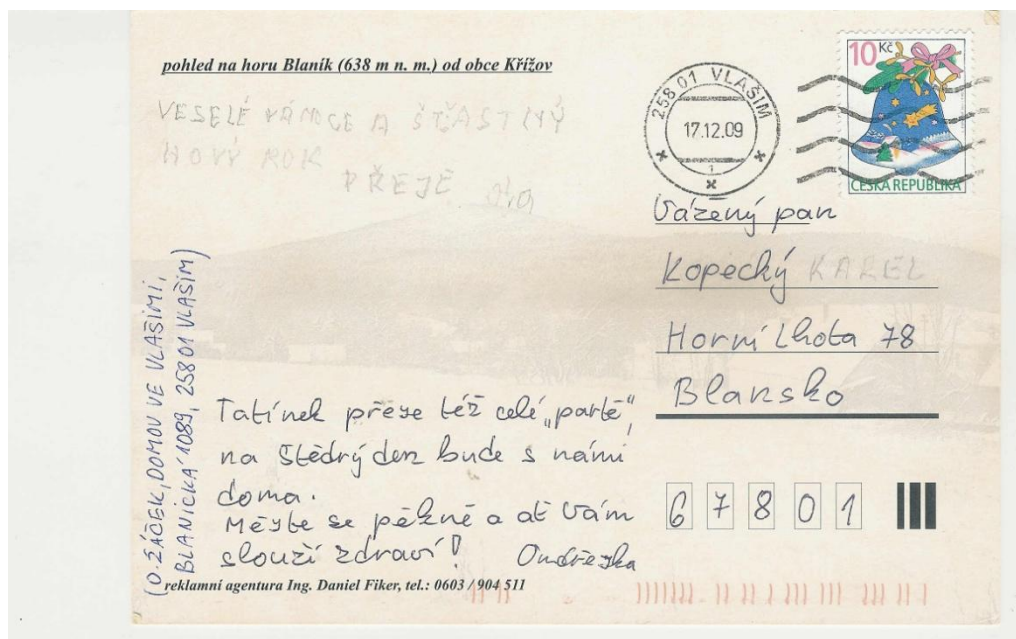 pohled na horu Blaník (638 m n. m.) od obce Křížov
VESELÉ VÁNOCE A ŠŤASTNÝ
NOVÝ ROK
PŘEJE
258 01 VLAŠIM
17.12.09
1
10 Kč
ČESKÁ REPUBLIKA
Vážený pan
Kopecký KAREL
Horní Lhota 78
Blansko
67801
(O. ŽÁČEK, DOMOV VE VLAŠIMI,
BLANICKÁ 1089, 258 01 VLAŠIM)
Tatínek přeje též celé „partě“,
na Štědrý den bude s námi
doma.
Mějte se pěkně a ať Vám
slouží zdraví!
Ondřejka
reklamní agentura Ing. Daniel Fiker, tel.: 0603 / 904 511